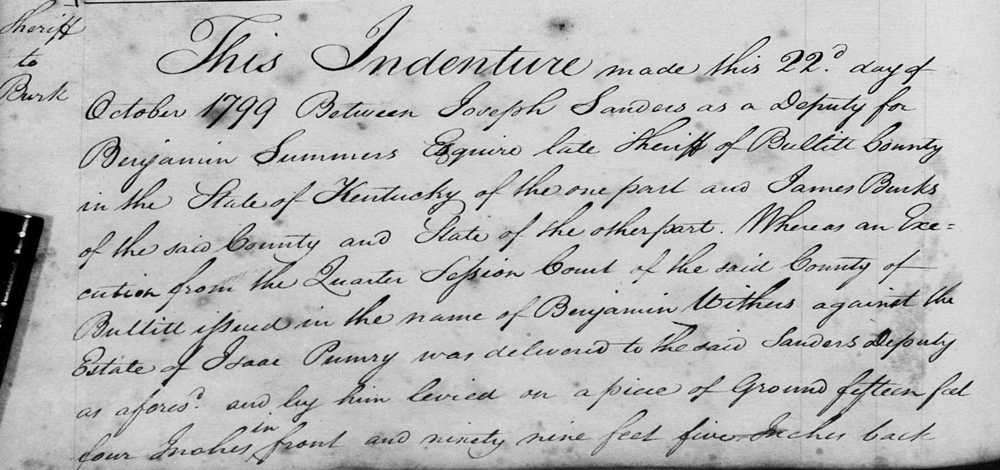 Sheriff
to
Burk
This Indenture made this 22.d day of
October 1799 Between Joseph Sanders as a Deputy for
Benjamin Summers Esquire late Sheriff of Bullitt County
in the State of Kentucky of the one part and James Burks
of the said County and State of the other part. Whereas an Exe=
cution from the Quarter Session Court of the said County of
Bullitt issued in the name of Benjamin Withers against the
Estate of Isaac Pumry was delivered to the said Sanders Deputy
as afores.d and by him levied on a piece of Ground fifteen feet
four Inches in front and ninety nine feet five Inches back